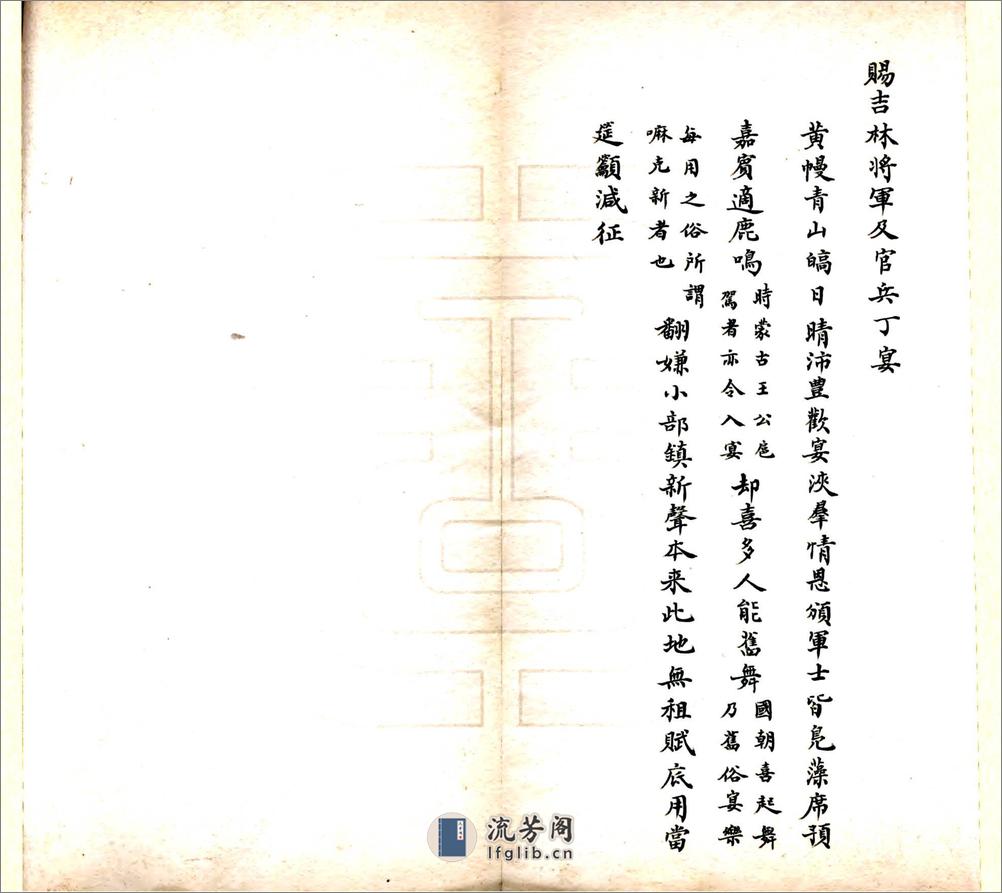 賜吉林將軍及官兵丁宴
黃幔青山皜日晴沛豊歡宴浹羣情恩頒軍士皆鳧藻席預
嘉賓適鹿鳴時蒙古王公扈駕者亦令入宴却喜多人能舊舞國朝喜起舞乃舊俗宴樂
每用之俗所謂嘛克新者也翻嫌小部鎮新聲本来此地無租賦底用當
筵顲減征
流芳阁
lfglib.cn